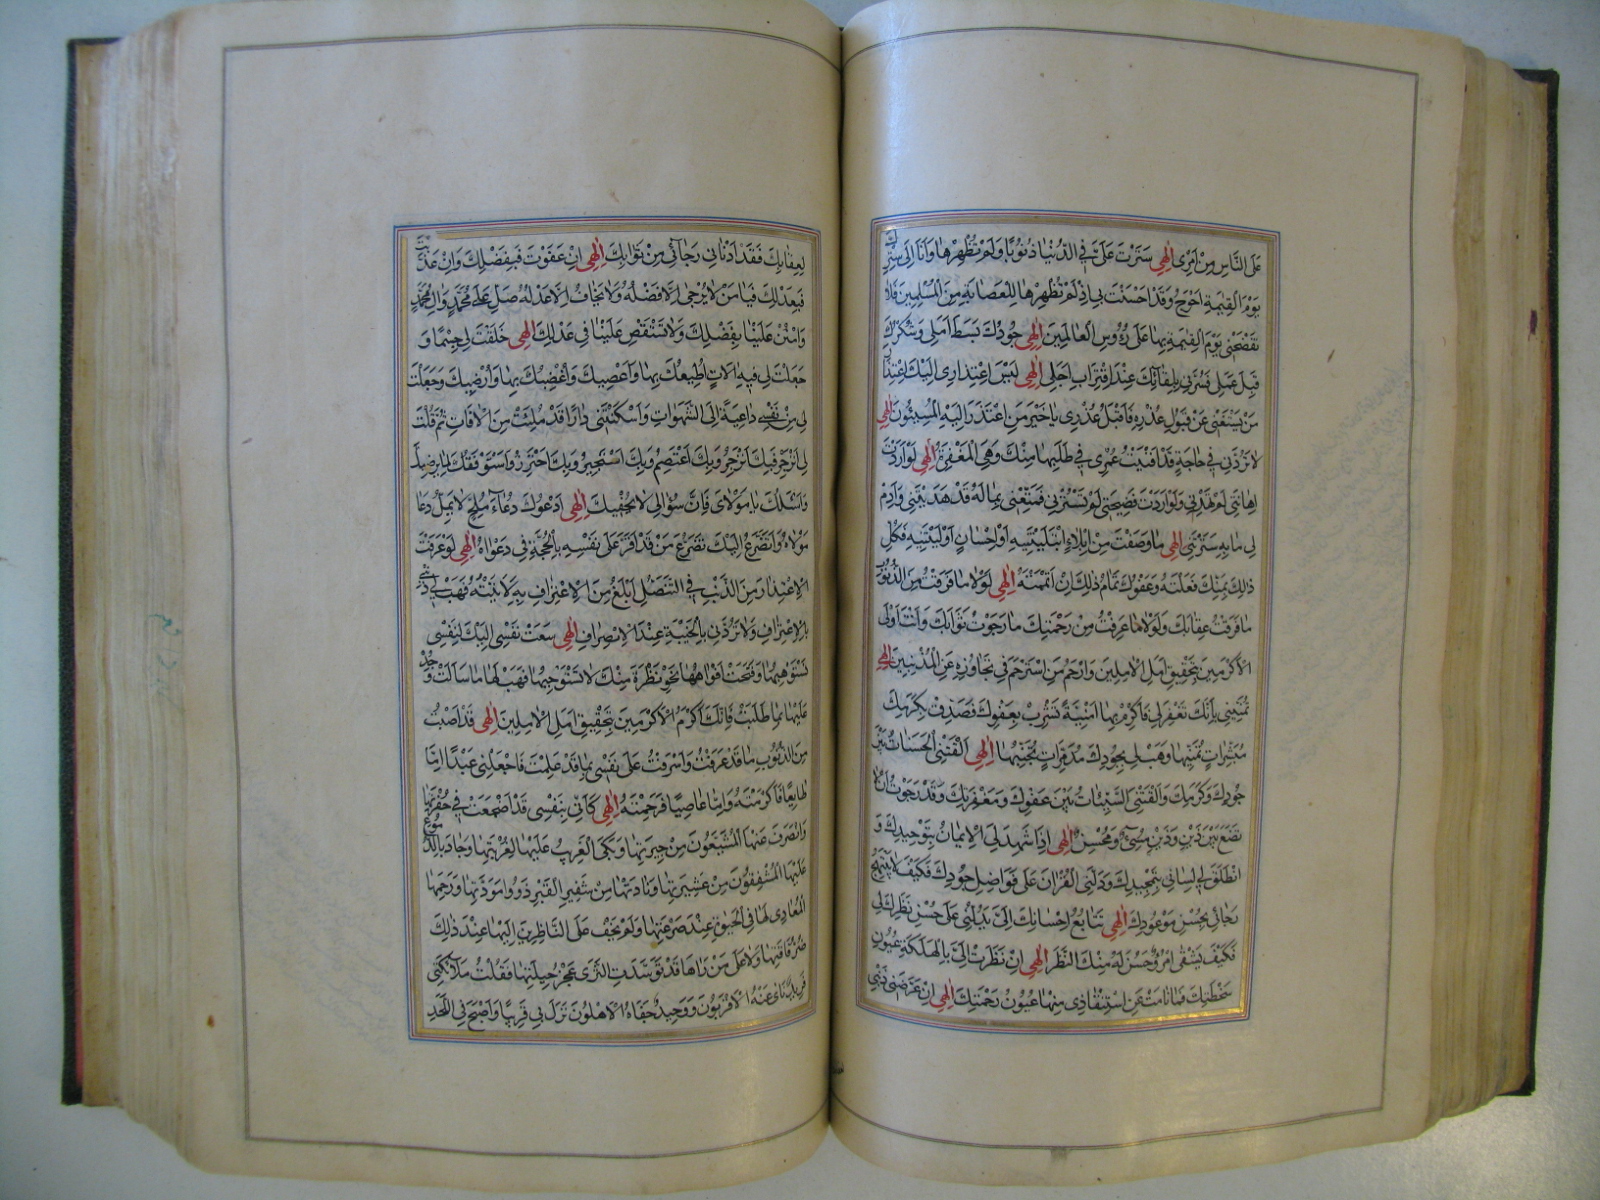 عَلَى النَّاسِ مِنْ اَمْرِى اِلٰهِى سَتَرْتَ عَلَىَّ فِى الدُّنْيَا ذُنُوبًا وَلَمْ تُظْهِرْهَا وَاَنَا اِلَى سَتْرِكَ
يَوْمَ الْقِيٰمَةِ اَحْوَجُ وَقَدْ اَحْسَنْتَ بِى اِذْ لَمْ تُظْهِرْهَا لِلْعِصَابَةِ مِنَ الْمُسْلِمِينَ فَلَا
تَفْضَحْنِى يَوْمَ الْقِيٰمَةِ بِهَا عَلَى رُؤُسِ الْعَالَمِينَ اِلٰهِى جُودُكَ بَسَطَ اَمَلِى وَشُكْرُكَ
قَبِلَ عَمَلِى فَسُرَّنِى بِلِقَآئِكَ عِنْدَ اقْتِرَابِ اَجَلِى اِلٰهِى لَيْسَ اعْتِذَارِى اِلَيْكَ اعْتِذَارَ
مَنْ يَسْتَغْنِى عَنْ قَبُولِ عُذْرِهِ فَاقْبَلْ عُذْرِى يَا خَيْرَ مَنِ اعْتَذَرَ اِلَيْهِ الْمُسِيئُونَ اِلٰهِى
لَا تَرُدَّنِى فِى حَاجَةٍ قَدْ اَفْنَيْتُ عُمْرِى فِى طَلَبِهَا مِنْكَ وَهِىَ الْمَغْفِرَةُ اِلٰهِى لَوْ اَرَدْتَ
اِهَانَتِى لَمْ تَهْدِنِى وَلَوْ اَرَدْتَ فَضِيحَتِى لَمْ تَسْتُرْنِى فَمَتِّعْنِى بِمَا لَهُ قَدْ هَدَيْتَنِى وَاَدِمْ
لِى مَا بِهِ سَتَرْتَنِى اِلٰهِى مَا وَصَفْتُ مِنْ اِبْلَاءٍ ابْتَلَيْتَنِيهِ اَوْ اِحْسَانٍ اَوْلَيْتَنِيهِ فَكُلُّ
ذٰلِكَ بِمَنِّكَ فَعَلْتَهُ وَعَفْوُكَ تَمَامُ ذٰلِكَ اِنْ اَتْمَمْتَهُ اِلٰهِى لَوْلَا مَا قَرَفْتُ مِنَ الذُّنُوبِ
مَا فَرِقْتُ عِقَابَكَ وَلَوْلَا مَا عَرَفْتُ مِنْ رَحْمَتِكَ مَا رَجَوْتُ ثَوَابَكَ وَاَنْتَ اَوْلَى
الْاَكْرَمِينَ بِتَحْقِيقِ اَمَلِ الْاٰمِلِينَ وَاَرْحَمُ مَنِ اسْتُرْحِمَ فِى تَجَاوُزِهِ عَنِ الْمُذْنِبِينَ اِلٰهِى
تُمَنِّينِى بِاَنَّكَ تَغْفِرُ لِى فَاَكْرِمْ بِهَا اُمْنِيَّةً بِعَفْوِكَ فَصَدِّقْ بِكَرَمِكَ
مُبَشِّرَاتِ تَمَنِّيهَا وَهَبْ لِى بِجُودِكَ مُدَمِّرَاتِ تَجَنِّيهَا اِلٰهِى اَلْقَتْنِى الْحَسَنَاتُ بَيْنَ
جُودِكَ وَكَرَمِكَ وَاَلْقَتْنِى السَّيِّئَاتُ بَيْنَ عَفْوِكَ وَمَغْفِرَتِكَ وَقَدْ رَجَوْتُ اَنْ لَا
يَضِيعَ بَيْنَ ذَيْنِ وَذَيْنِ مُسِىءٌ وَمُحْسِنٌ اِلٰهِى اِذَا شَهِدَ لِىَ الْاِيمَانُ بِتَوْحِيدِكَ وَ
انْطَلَقَ لِسَانِى بِتَمْجِيدِكَ وَدَلَّنِى الْقُرْاٰنُ عَلَى فَوَاضِلِ جُودِكَ فَكَيْفَ لَا يَبْتَهِجُ
رَجَائِى بِحُسْنِ مَوْعُودِكَ اِلٰهِى تَتَابُعُ اِحْسَانِكَ اِلَىَّ يَدُلُّنِى عَلَى حُسْنِ نَظَرِكَ لِى
فَكَيْفَ يَشْقَى امْرُؤٌ حَسُنَ لَهُ مِنْكَ النَّظَرُ اِلٰهِى اِنْ نَظَرَتْ اِلَىَّ بِالْهَلَكَةِ عُيُونُ
سَخْطَتِكَ فَمَا نَامَتْ عَنِ اسْتِنْقَاذِى مِنْهَا عُيُونُ رَحْمَتِكَ اِلٰهِى اِنْ عَرَّضَنِى ذَنْبِى
لِعِقَابِكَ فَقَدْ اَدْنَانِى رَجَائِى مِنْ ثَوَابِكَ اِلٰهِى اِنْ عَفَوْتَ فَبِفَضْلِكَ وَاِنْ عَذَّبْتَ
فَبِعَدْلِكَ فَيَا مَنْ لَا يُرْجَى اِلَّا فَضْلُهُ وَلَا يُخَافُ اِلَّا عَدْلُهُ صَلِّ عَلَى مُحَمَّدٍ وَاٰلِ مُحَمَّدٍ
وَامْنُنْ عَلَيْنَا بِفَضْلِكَ وَلَا تَسْتَقْصِ عَلَيْنَا فِى عَدْلِكَ اِلٰهِى خَلَقْتَ لِى جِسْمًا وَ
جَعَلْتَ لِى فِيهِ اٰلَاتٍ اُطِيعُكَ بِهَا وَاَعْصِيكَ وَاُغْضِبُكَ بِهَا وَاُرْضِيكَ وَجَعَلْتَ
لِى مِنْ نَفْسِى دَاعِيَةً اِلَى الشَّهَوَاتِ وَاَسْكَنْتَنِى دَارًا قَدْ مُلِئَتْ مِنَ الْاٰفَاتِ ثُمَّ قُلْتَ
لِى انْزَجِرْ فَبِكَ اَنْزَجِرُ وَبِكَ اَعْتَصِمُ وَبِكَ اَسْتَجِيرُ وَبِكَ اَحْتَرِزُ وَاَسْتَوْفِقُكَ لِمَا يُرْضِيكَ
وَاَسْئَلُكَ يَا مَوْلَاىَ فَاِنَّ سُؤَالِى لَا يُحْفِيكَ اِلٰهِى اَدْعُوكَ دُعَآءَ مُلِحٍّ لَا يَمَلُّ دُعَآءَ
مَوْلَاهُ وَاَتَضَرَّعُ اِلَيْكَ تَضَرُّعَ مَنْ قَدْ اَقَرَّ عَلَى نَفْسِهِ بِالْحُجَّةِ فِى دَعْوَاهُ اِلٰهِى لَوْ عَرَفْتُ
الْاِعْتِذَارَ مِنَ الذَّنْبِ فِى التَّنَصُّلِ اَبْلَغَ مِنَ الْاِعْتِرَافِ بِهِ لَاَتَيْتُهُ فَهَبْ لِى ذَنْبِى
بِالْاِعْتِرَافِ وَلَا تَرُدَّنِى بِالْخَيْبَةِ عِنْدَ الْاِنْصِرَافِ اِلٰهِى سَعَتْ نَفْسِى اِلَيْكَ لِنَفْسِى
تَسْتَوْهِبُهَا وَفَتَحَتْ اَفْوَاهَهَا نَحْوَ نَظْرَةٍ مِنْكَ لَا تَسْتَوْجِبُهَا فَهَبْ لَهَا مَا سَاَلَتْ وَجُدْ
عَلَيْهَا بِمَا طَلَبَتْ فَاِنَّكَ اَكْرَمُ الْاَكْرَمِينَ بِتَحْقِيقِ اَمَلِ الْاٰمِلِينَ اِلٰهِى قَدْ اَصَبْتُ
مِنَ الذُّنُوبِ مَا قَدْ عَرَفْتَ وَاَسْرَفْتُ عَلَى نَفْسِى بِمَا قَدْ عَلِمْتَ فَاجْعَلْنِى عَبْدًا اِمَّا
طَايِعًا فَاَكْرَمْتَهُ وَاِمَّا عَاصِيًا فَرَحِمْتَهُ اِلٰهِى كَاَنِّى بِنَفْسِى قَدْ اُضْجِعَتْ فِى حُفْرَتِهَا
وَانْصَرَفَ عَنْهَا الْمُشَيِّعُونَ مِنْ جِيرَتِهَا وَبَكَى الْغَرِيبُ عَلَيْهَا لِغُرْبَتِهَا وَجَادَ بِالدُّمُوعِ
عَلَيْهَا الْمُشْفِقُونَ مِنْ عَشِيرَتِهَا وَنَادَتْهَا مِنْ شَفِيرِ الْقَبْرِ ذَوُو مَوَدَّتِهَا وَرَحِمَهَا
الْمُعَادِى لَهَا فِى الْحَيٰوةِ عِنْدَ صَرْعَتِهَا وَلَمْ يَخْفَ عَلَى النَّاظِرِينَ اِلَيْهَا عِنْدَ ذٰلِكَ
ضُرُّ فَاقَتِهَا وَلَا عَلَى مَنْ رَاٰهَا قَدْ تَوَسَّدَتِ الثَّرَى عَجْزُ حِيلَتِهَا فَقُلْتَ مَلَائِكَتِى
فَرِيدٌ نَاٰى عَنْهُ الْاَقْرَبُونَ وَوَحِيدٌ جَفَاهُ الْاَهْلُونَ نَزَلَ بِى قَرِيبًا وَاَصْبَحَ فِى اللَّحْدِ